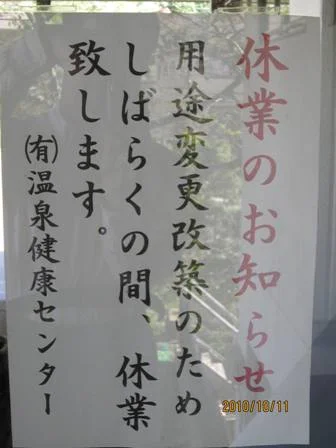 休業のお知らせ
用途変更改築のため
しばらくの間、休業
致します。
㈲温泉健康センター
2010/10/11